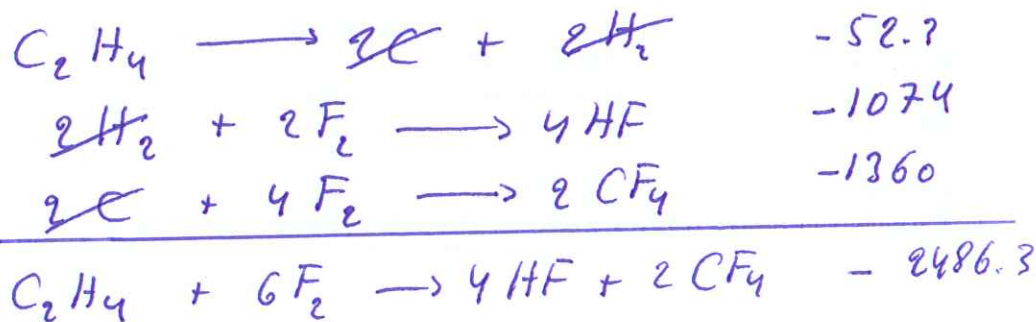 C₂H₄ ⟶ 2C + 2H₂ -52.3
2H₂ + 2F₂ ⟶ 4HF -1074
2C + 4F₂ ⟶ 2CF₄ -1360
C₂H₄ + 6F₂ ⟶ 4HF + 2CF₄ - 2486.3